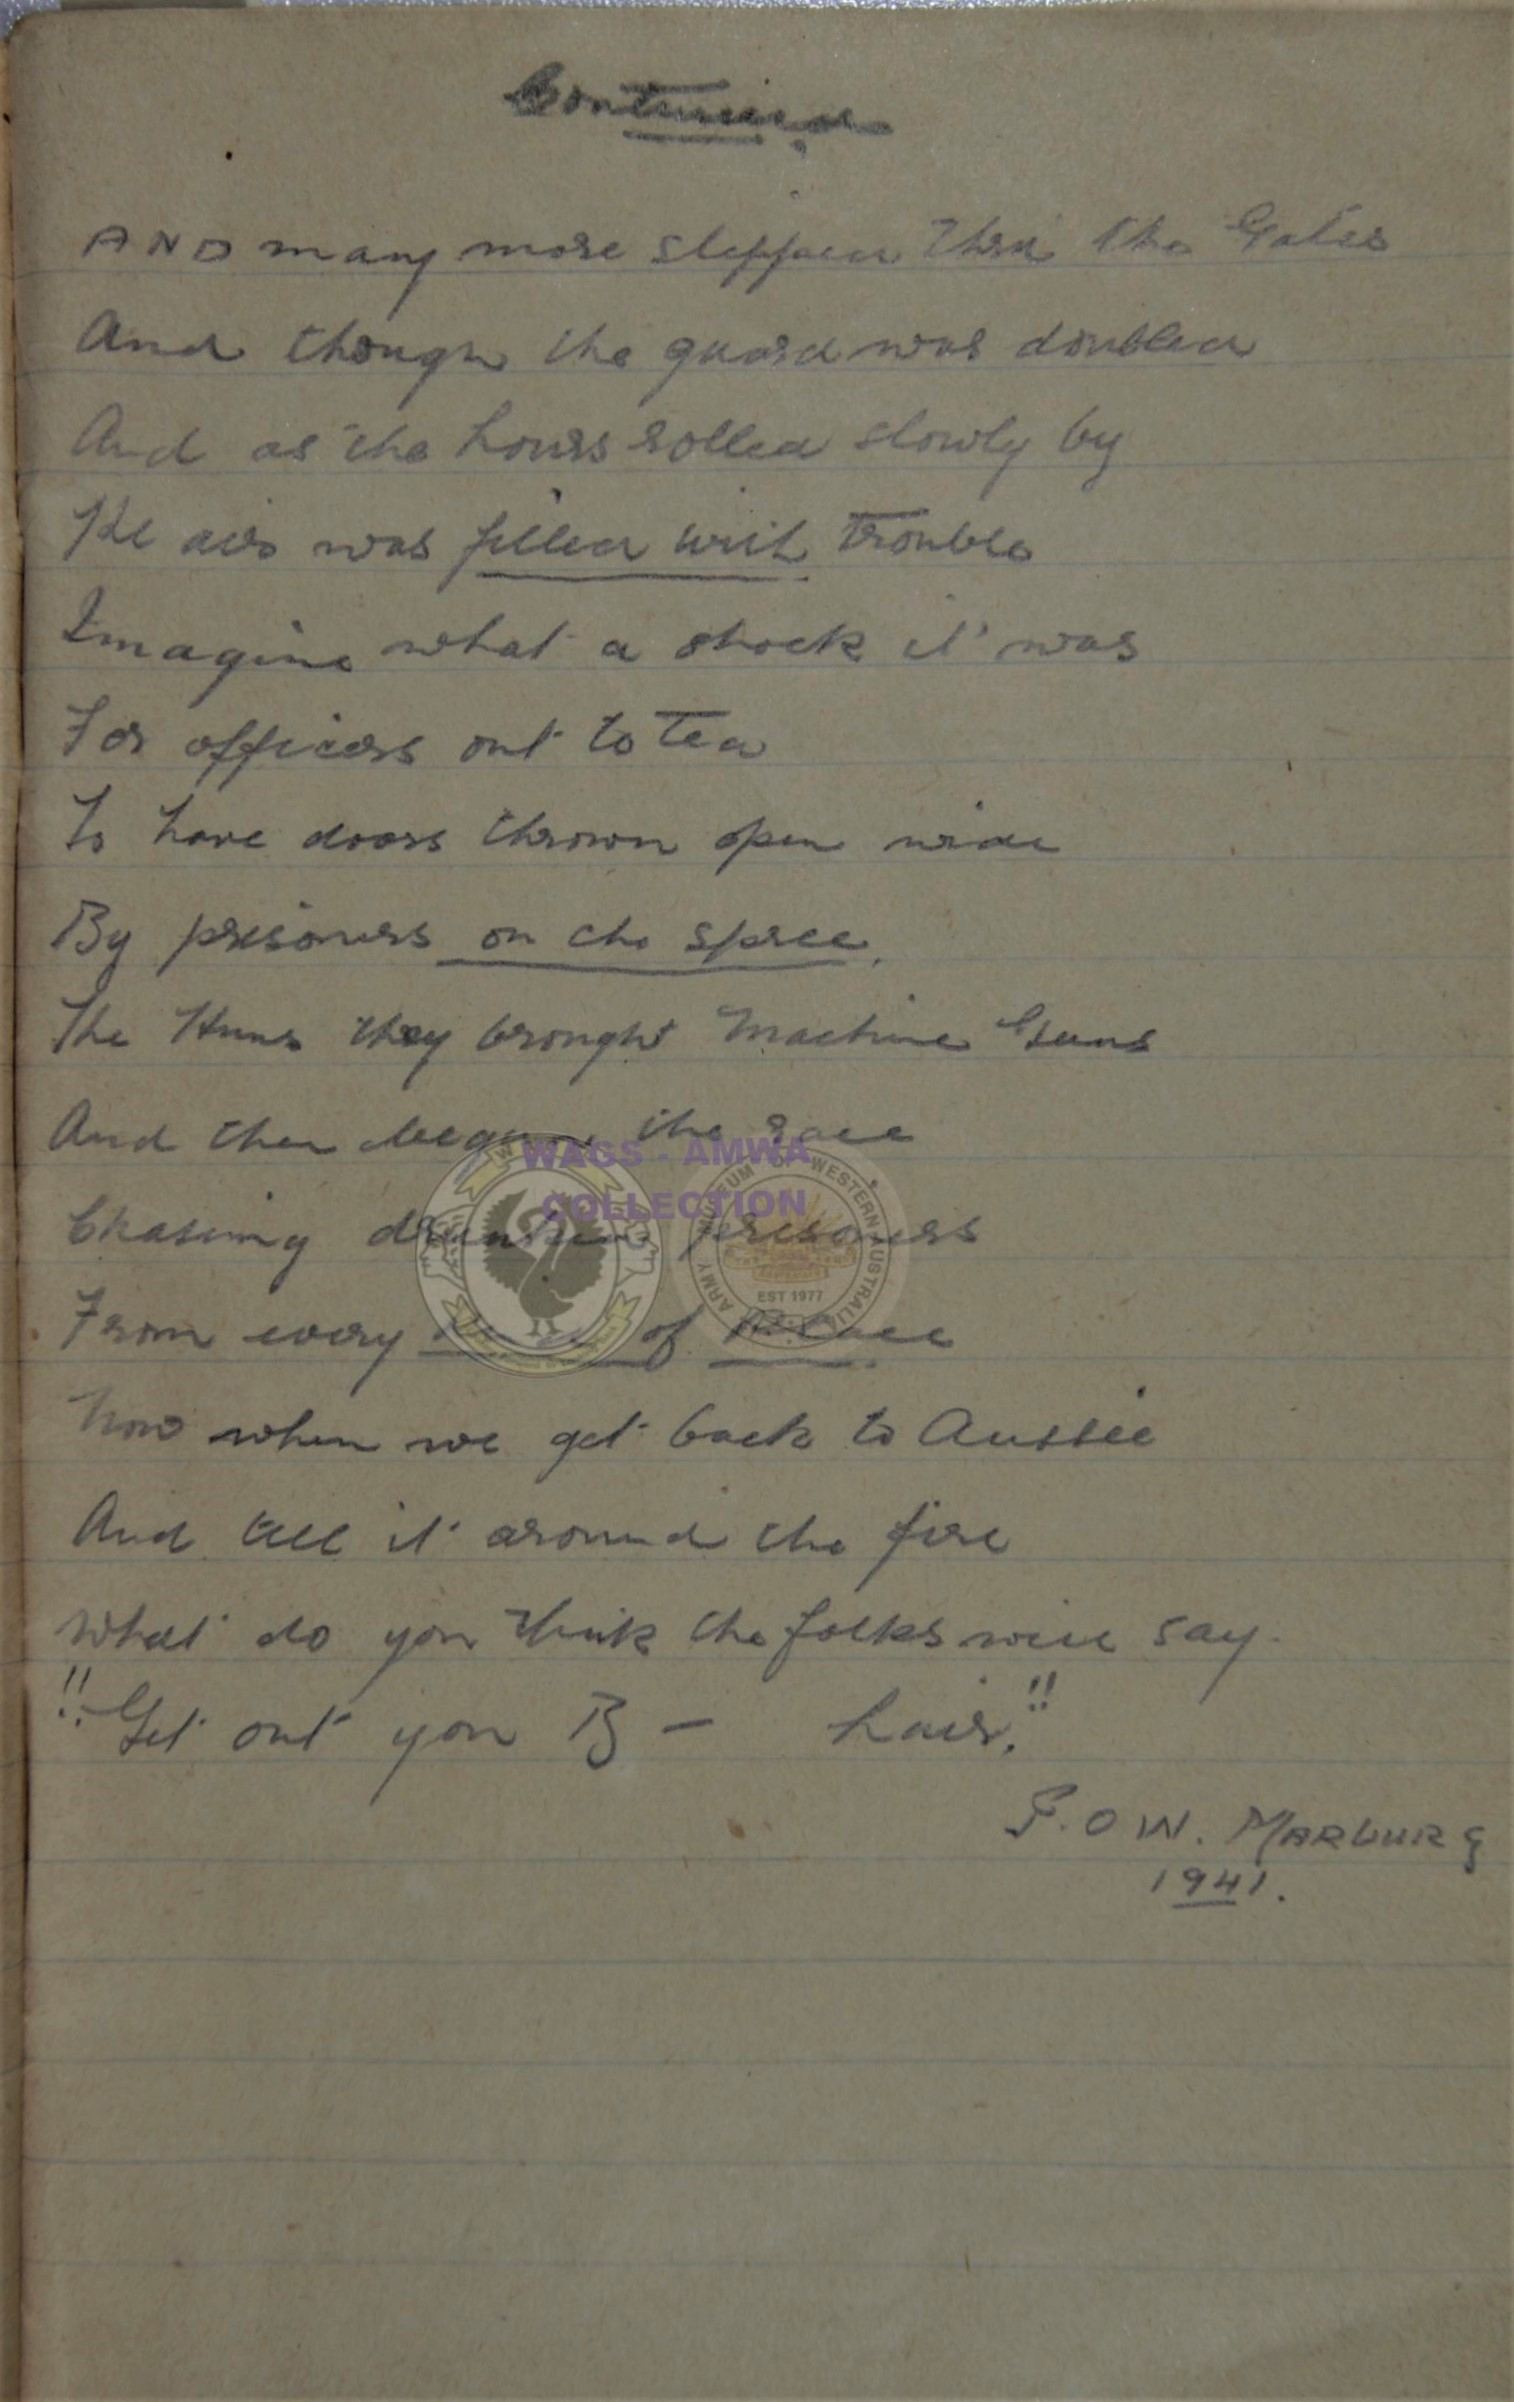 Continued
AND many more slipped thru the Gates
And though the guard was doubled
And as the hours rolled slowly by
The air was filled with trouble
Imagine what a shock it was
For officers out to Tea
To have doors thrown open wide
By prisoners on the spree.
The Huns they brought Machine Guns
And then began the race
WAGS - AMWA
COLLECTION
Chasing drunken prisoners
MUSEUM OF WESTERN AUSTRALIA ARMY
EST 1977
From every of
Now when we get back to Aussie
And tell it around the fire
What do you think the folks will say.
"Get out you B - liar."
P.O.W. MARBURG
1941.